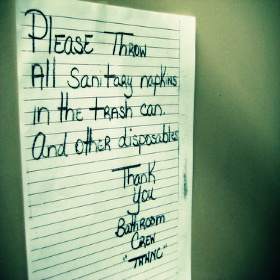 Please Throw
All Sanitary napkins
in the trash can.
And other disposables
Thank
you
Bathroom
Crew